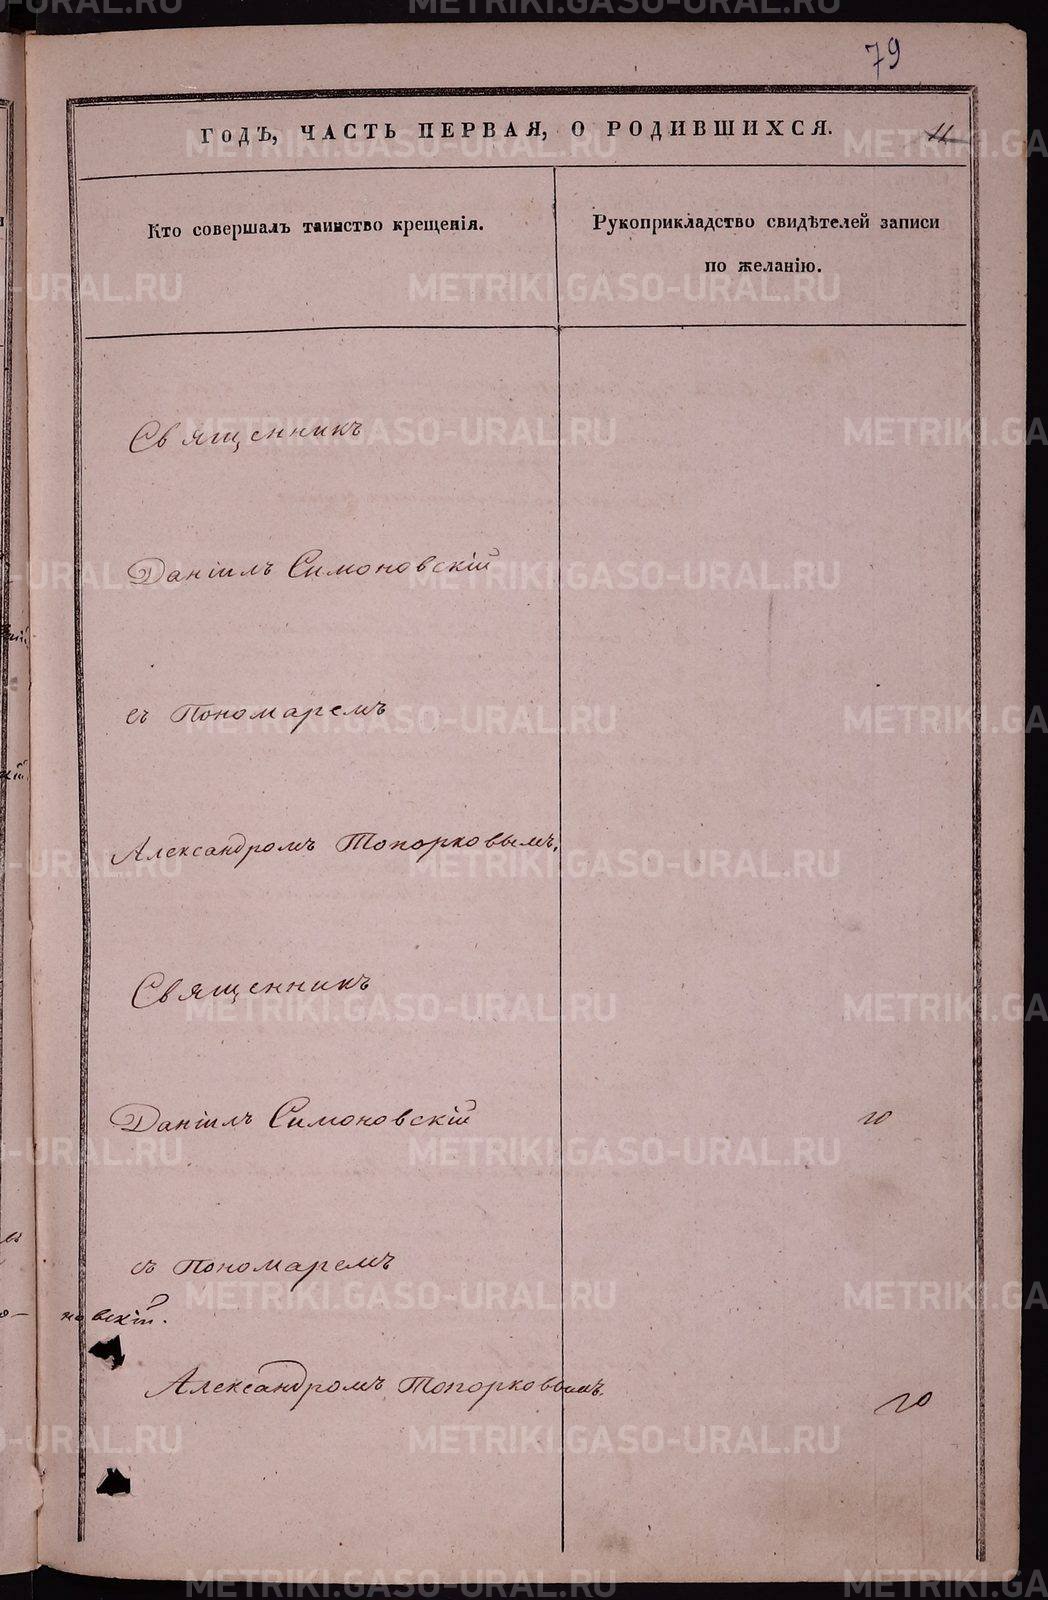 79
ГОДЪ, ЧАСТЬ ПЕРВАЯ, О РОДИВШИХСЯ.
11
Кто совершалъ таинство крещенія.
Рукоприкладство свидѣтелей записи
по желанію.
Священникъ
Даніилъ Симоновскій
съ Пономаремъ
Александромъ Топорковымъ.
Священникъ
Даніилъ Симоновскій
съ Пономаремъ
новскій.
Александромъ Топорковымъ.
METRIKI.GASO-URAL.RU